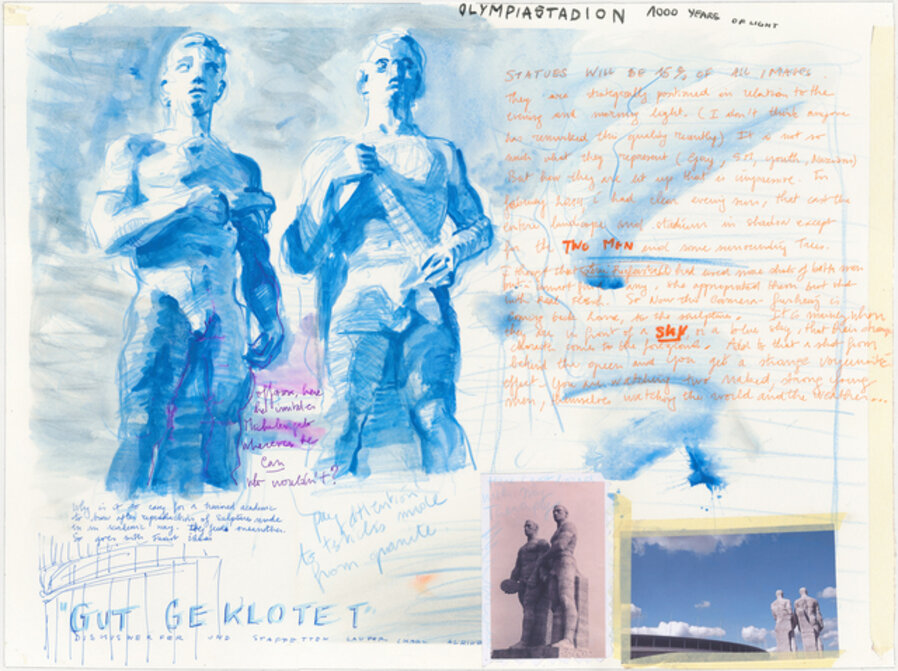 OLYMPIASTADION 1000 YEARS OF LIGHT
STATUES WILL BE 15% OF ALL IMAGES.
They are strategically positioned in relation to the
evening and morning light. (I don't think anyone
has remarked this quality recently) It is not so
much what they represent (Gay, SM, youth,
But how they are set up that is impressive. In
I had clear evening sun, that cast the
entire landscape and stadium in shadow except
for the TWO MEN and some surrounding trees.
I thought that had used more shots of both men
but any. She appropriated them but shot
with real flesh. So now the camera is
coming back home, to the sculpture. It is mainly when
they are in front of a SKY, or a blue sky, that their strange
comes to the foreground. Add to that a shot from
behind the open and you get a strange
effect. You are watching two naked, strong young
men, themselves watching the world and the weather...
of course, here
he imitates
Michelangelo
wherever he
can
who wouldn't?
Why is it so easy for a trained academic
to draw after reproductions of sculptures made
in an academic way. They each other.
So goes with
pay attention
to testicles made
from granite
"GUT GEKLOTET"
DISKUSWERFER UND STAFFETTEN LAUFER